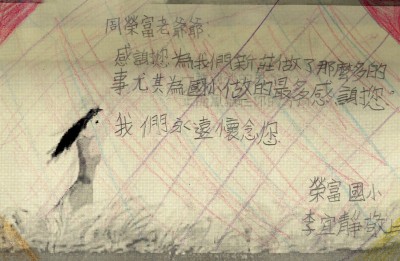 周榮富老爺爺:
感謝您為我們新莊做了那麼多的
事尤其為國小做的最多感謝您
我們永遠懷念您
榮富國小
李宜靜敬上